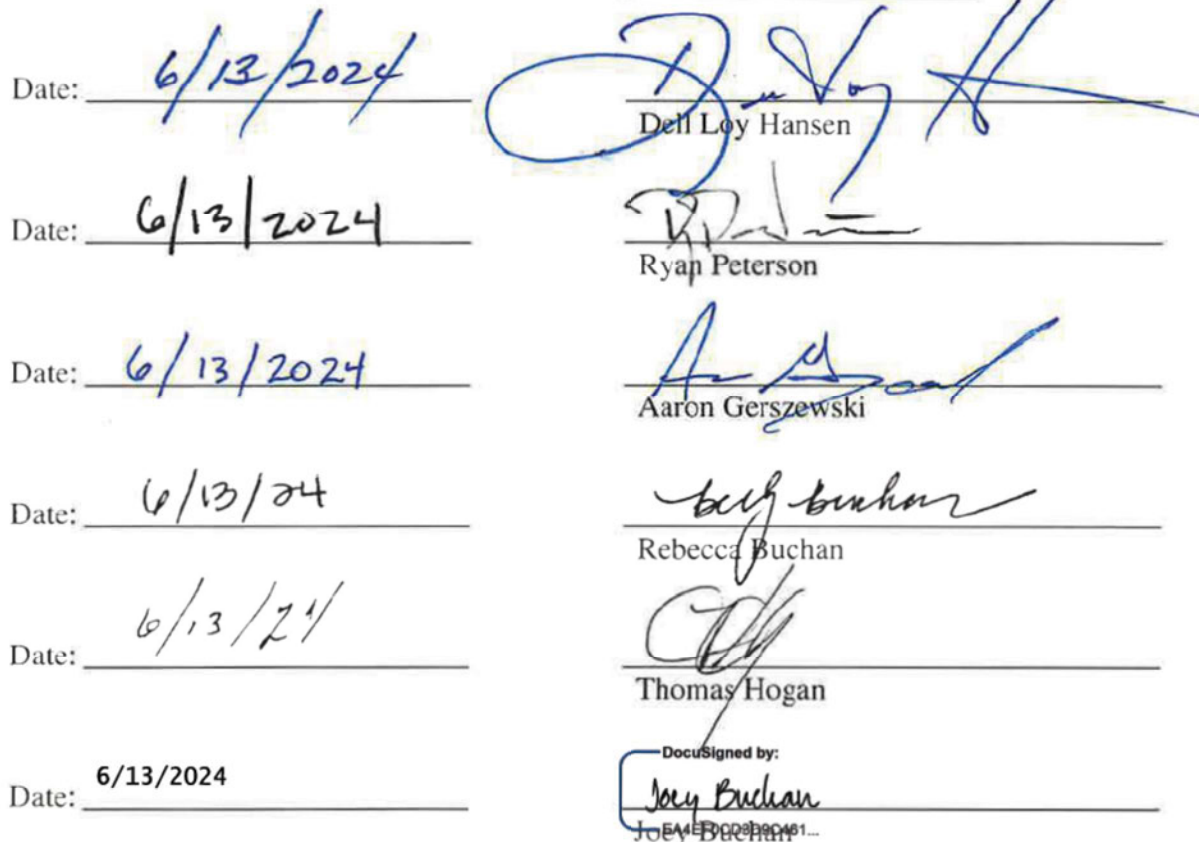 Date: 6/13/2024
Dell Loy Hansen
Date: 6/13/2024
Ryan Peterson
Date: 6/13/2024
Aaron Gerszewski
Date: 6/13/24
Becky Buchan
Rebecca Buchan
Date: 6/13/24
Thomas Hogan
DocuSigned by:
Date: 6/13/2024 Joey Buchan
Joey Buchan